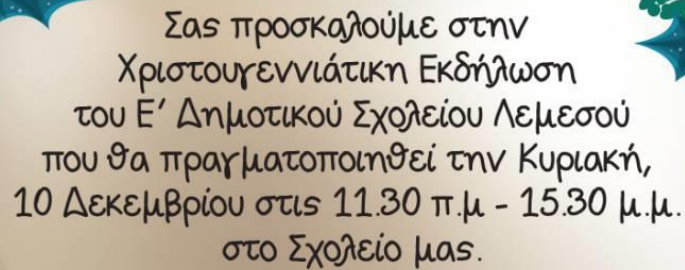 Σας προσκαλούμε στην
Χριστουγεννιάτικη Εκδήλωση
του Ε' Δημοτικού Σχολείου Λεμεσού
που θα πραγματοποιηθεί την Κυριακή,
10 Δεκεμβρίου στις 11.30 π.μ - 15.30 μ.μ.
στο Σχολείο μας.